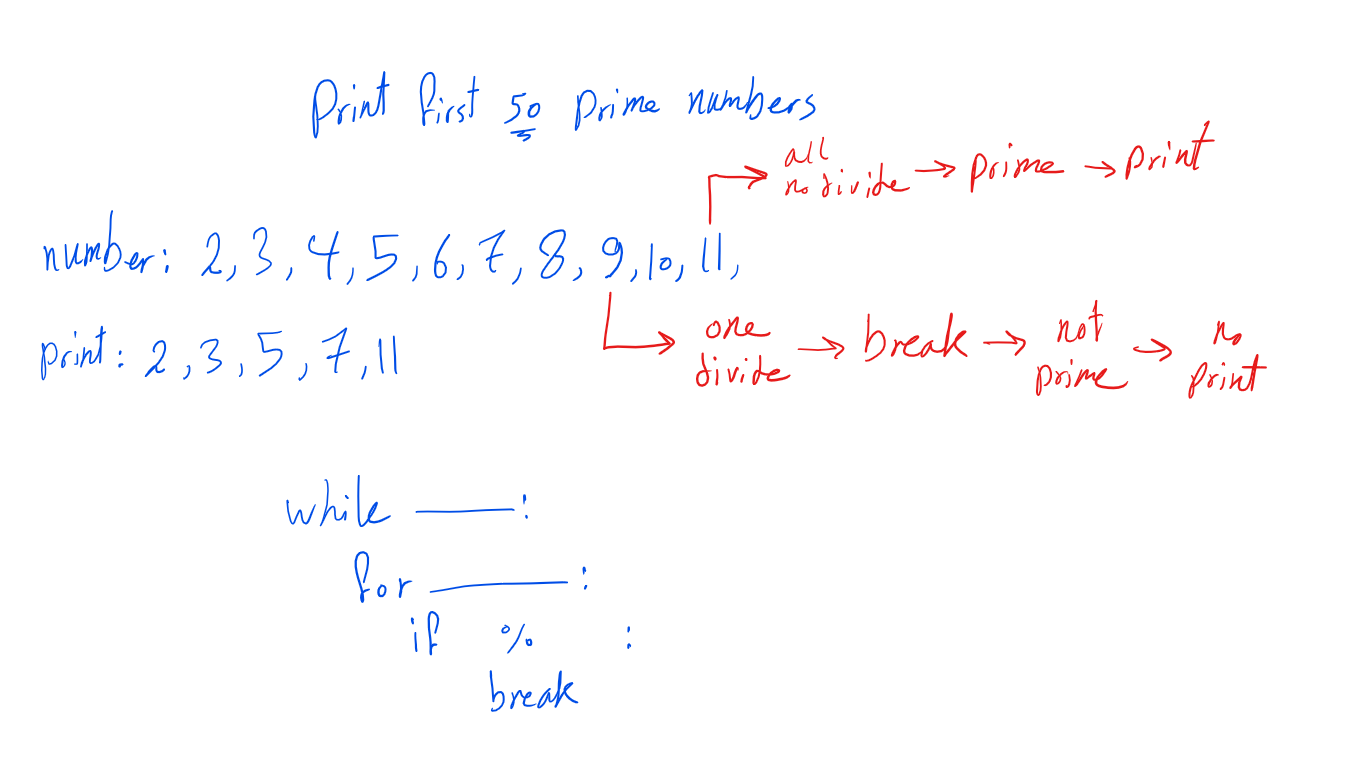 Print first 50 prime numbers
all
no divide → prime → print
number: 2, 3, 4, 5, 6, 7, 8, 9, 10, 11,
one
divide → break → not
prime → no
print
print: 2, 3, 5, 7, 11
while ——:
for ———:
if % :
break